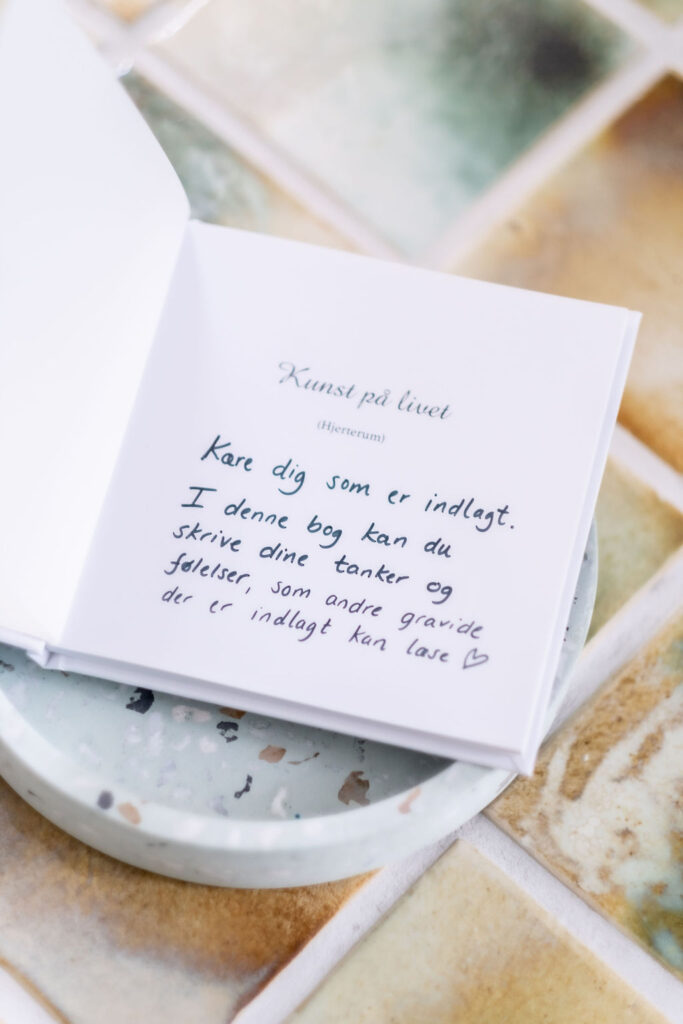 Kunst på livet
(Hjerterum)
Kære dig som er indlagt.
I denne bog kan du
skrive dine tanker og
følelser, som andre gravide
der er indlagt kan læse ♡